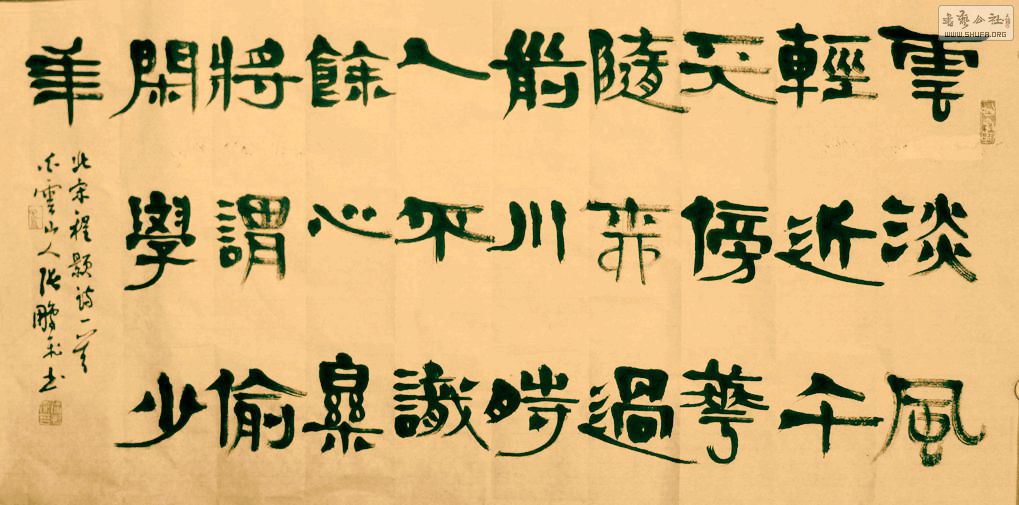 書藝公社
WWW.SHUFA.ORG
雲淡風
輕近午
天傍華
隨柳過
前川時
人不識
餘心樂
將謂偷
閑學少
年
北宋程颢詩一首
雲山人張鵬書